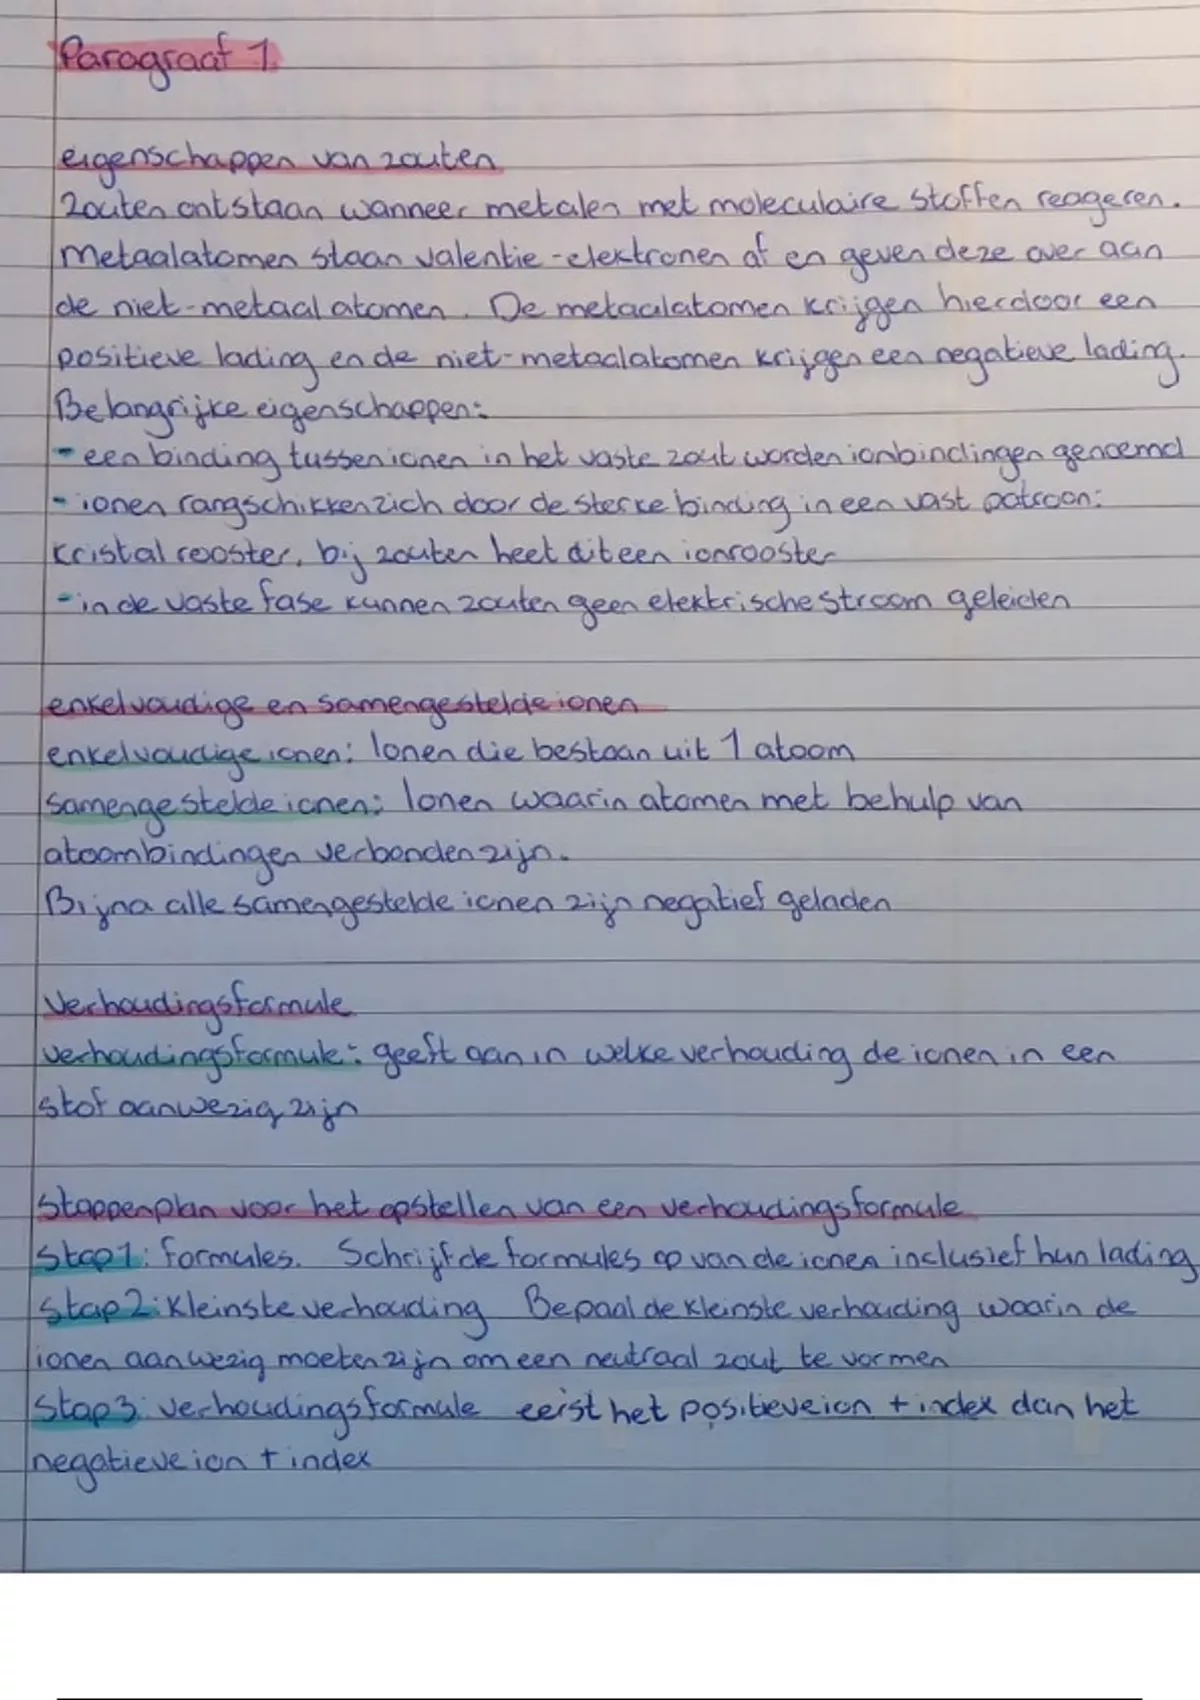 Paragraaf 1
eigenschappen van zouten
Zouten ontstaan wanneer metalen met moleculaire stoffen reageren.
Metaalatomen staan valentie-elektronen af en geven deze over aan
de niet-metaal atomen. De metaalatomen krijgen hierdoor een
positieve lading en de niet-metaalatomen krijgen een negatieve lading.
Belangrijke eigenschappen:
- een binding tussen ionen in het vaste zout worden ionbindingen genoemd
- ionen rangschikken zich door de sterke binding in een vast patroon:
kristal rooster, bij zouten heet dit een ionrooster
- in de vaste fase kunnen zouten geen elektrische stroom geleiden
enkelvoudige en samengestelde ionen
enkelvoudige ionen: Ionen die bestaan uit 1 atoom
Samengestelde ionen: Ionen waarin atomen met behulp van
atoombindingen verbonden zijn.
Bijna alle samengestelde ionen zijn negatief geladen
Verhoudingsformule
verhoudingsformule: geeft aan in welke verhouding de ionen in een
stof aanwezig zijn
Stappenplan voor het opstellen van een verhoudingsformule
Stap 1: formules. Schrijf de formules op van de ionen inclusief hun lading
Stap 2: Kleinste verhouding Bepaal de kleinste verhouding waarin de
ionen aanwezig moeten zijn om een neutraal zout te vormen
Stap 3: verhoudingsformule eerst het positieve ion + index dan het
negatieve ion + index